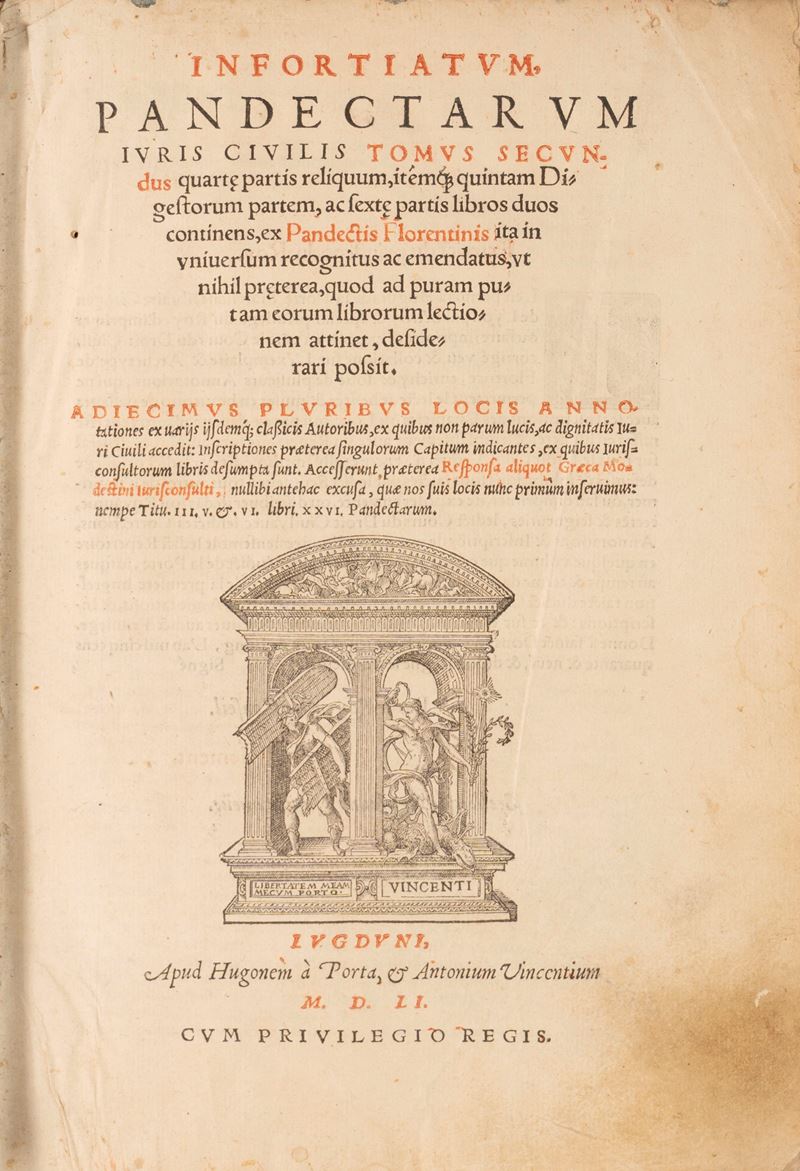 INFORTIATVM,
PANDECTARVM
IVRIS CIVILIS TOMVS SECVN-
dus quartę partis reliquum, itémq; quintam Di/
geſtorum partem, ac ſextę partis libros duos
continens, ex Pandectis Florentinis ita in
vniuerſum recognitus ac emendatus, vt
nihil pręterea, quod ad puram pu/
tam eorum librorum lectio/
nem attinet, deſide/
rari poſsit.
ADIECIMVS PLVRIBVS LOCIS ANNO-
tationes ex uarijs ijſdemq; claßicis Autoribus, ex quibus non parum lucis, ac dignitatis Iu=
ri Ciuili accedit: Inſcriptiones præterea ſingulorum Capitum indicantes, ex quibus Iuriſ=
conſultorum libris deſumpta ſunt. Acceſſerunt præterea Reſponſa aliquot Græca Mo=
deſtini Iuriſconſulti, nullibi antehac excuſa, quæ nos ſuis locis nũc primùm inſeruimus:
nempe Titu. III. V. &. VI. libri. XXVI. Pandectarum.
LIBERTATEM MEAM
MECVM PORTO.
VINCENTI
LVGDVNI,
Apud Hugonem à Porta, & Antonium Vincentium
M. D. LI.
CVM PRIVILEGIO REGIS.